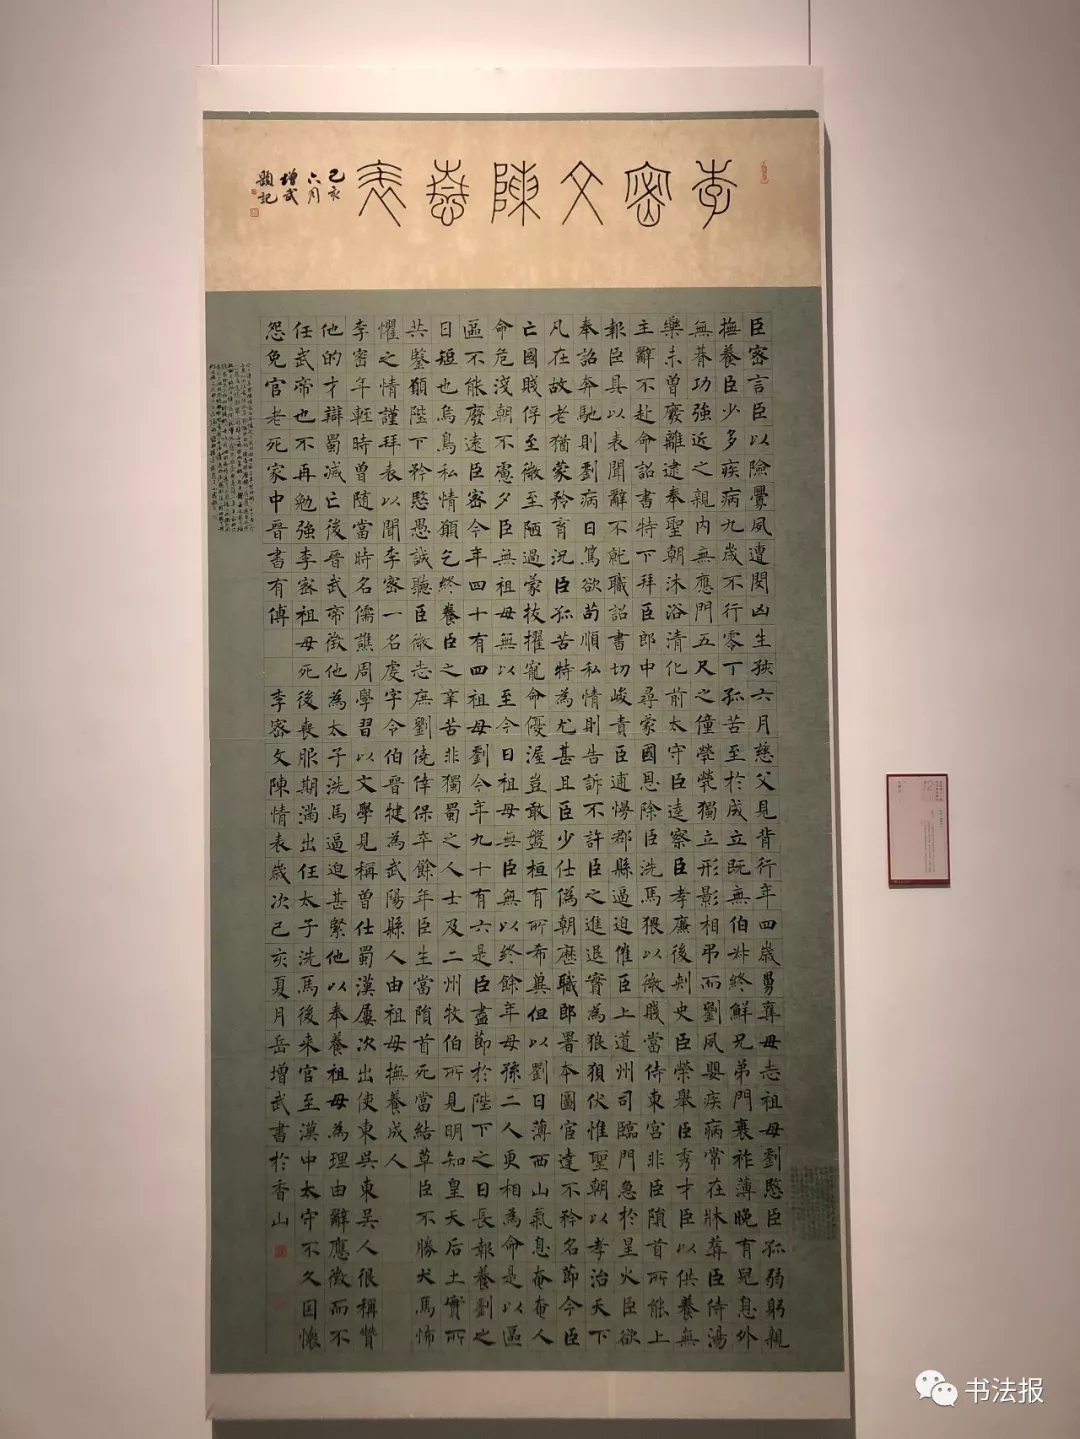 李密文陳情表
己亥
六月
增武
題記
臣密言臣以險釁夙遭閔凶生孩六月慈父見背行年四歲舅奪母志祖母劉愍臣孤弱躬親
撫養臣少多疾病九歲不行零丁孤苦至於成立既無伯叔終鮮兄弟門衰祚薄晚有兒息外
無朞功強近之親內無應門五尺之僮煢煢獨立形影相弔而劉夙嬰疾病常在牀蓐臣侍湯
藥未曾廢離逮奉聖朝沐浴清化前太守臣逵察臣孝廉後刺史臣榮舉臣秀才臣以供養無
主辭不赴命詔書特下拜臣郎中尋蒙國恩除臣洗馬猥以微賤當侍東宮非臣隕首所能上
報臣具以表聞辭不就職詔書切峻責臣逋慢郡縣逼迫催臣上道州司臨門急於星火臣欲
奉詔奔馳則劉病日篤欲苟順私情則告訴不許臣之進退實為狼狽伏惟聖朝以孝治天下
凡在故老猶蒙矜育況臣孤苦特為尤甚且臣少仕偽朝歷職郎署本圖宦達不矜名節今臣
亡國賤俘至微至陋過蒙拔擢寵命優渥豈敢盤桓有所希冀但以劉日薄西山氣息奄奄人
命危淺朝不慮夕臣無祖母無以至今日祖母無臣無以終餘年母孫二人更相為命是以區
區不能廢遠臣密今年四十有四祖母劉今年九十有六是臣盡節於陛下之日長報養劉之
日短也烏鳥私情願乞終養臣之辛苦非獨蜀之人士及二州牧伯所見明知皇天后土實所
共鑒願陛下矜愍愚誠聽臣微志庶劉僥倖保卒餘年臣生當隕首死當結草臣不勝犬馬怖
懼之情謹拜表以聞李密一名虔字令伯晉犍為武陽縣人由祖母撫養成人
李密年輕時曾随當時名儒譙周學習以文學見稱曾仕蜀漢屢次出使東吳東吳人很稱贊
他的才辯蜀滅亡後晉武帝徵他為太子洗馬逼迫甚緊他以奉養祖母為理由辭應徵而不
任武帝也不再勉強李密祖母死後喪服期滿出任太子洗馬後来官至漢中太守不久因懷
怨免官老死家中晉書有傳 李密文陳情表歲次己亥夏月岳增武書於香山
书法报